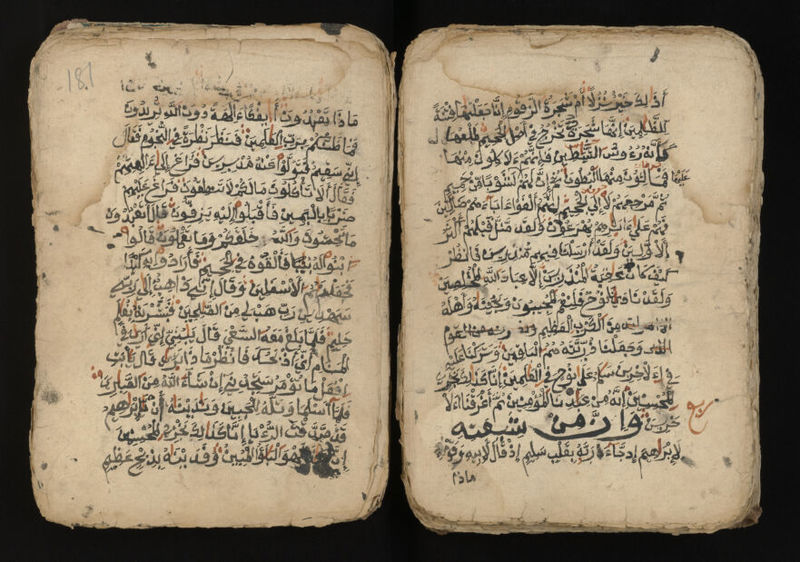 أذلك خير نزلا أم شجرة الزقوم إنا جعلنها فتنة
للظلمين إنها شجرة تخرج في أصل الجحيم طلعها
كأنه رءوس الشيطين فإنهم ءلاكلون منها
فمالئون منها البطون ثم إن لهم عليها لشوبا من حميم
ثم مرجعهم لإلى الجحيم إنهم ألفوا ءاباءهم ضالين
فهم على ءاثرهم يهرعون ولقد ضل قبلهم أكثر
الأولين ولقد أرسلنا فيهم منذرين فانظر
كيف كان عقبة المنذرين إلا عباد الله المخلصين
ولقد نادينا نوح فلنعم المجيبون ونجينه وأهله
من الكرب العظيم
وجعلنا ذريته هم الباقين وتركنا عليه
في الاخرين سلم على نوح في العلمين إنا كذلك نجزي
المحسنين إنه من عبادنا المؤمنين ثم أغرقنا الا
خرين وإن من شيعته
ربع
لإبرهيم إذ جاء ربه بقلب سليم إذ قال لأبيه وقومه
ماذا
181
ماذا تعبدون أئفكا ءالهة دون الله تريدون
فما ظنكم برب العلمين فنظر نظرة في النجوم فقال
إني سقيم فتولوا عنه مدبرين فراغ إلى ءالهتهم
فقال ألا تأكلون مالكم لا تنطقون فراغ عليهم
ضربا باليمين فأقبلوا إليه يزفون قال أتعبدون
ما تنحتون والله خلقكم وما تعملون قالوا
ابنوا له بنينا فألقوه في الجحيم فأرادوا به كيدا
فجعلنهم الأسفلين وقال إني ذاهب إلى ربي
سيهدين رب هب لي من الصلحين فبشرنه بغلم
حليم فلما بلغ معه السعي قال يبني إني أرى في
المنام أني أذبحك فانظر ماذا ترى قال يأبت
افعل ما تؤمر ستجدني إن شاء الله من الصبرين
فلما أسلما وتله للجبين وندينه أن يإبرهيم
قد صدقت الرءيا إنا كذلك نجزي المحسنين
إن هذا لهو البلؤا المبين وفدينه بذبح عظيم